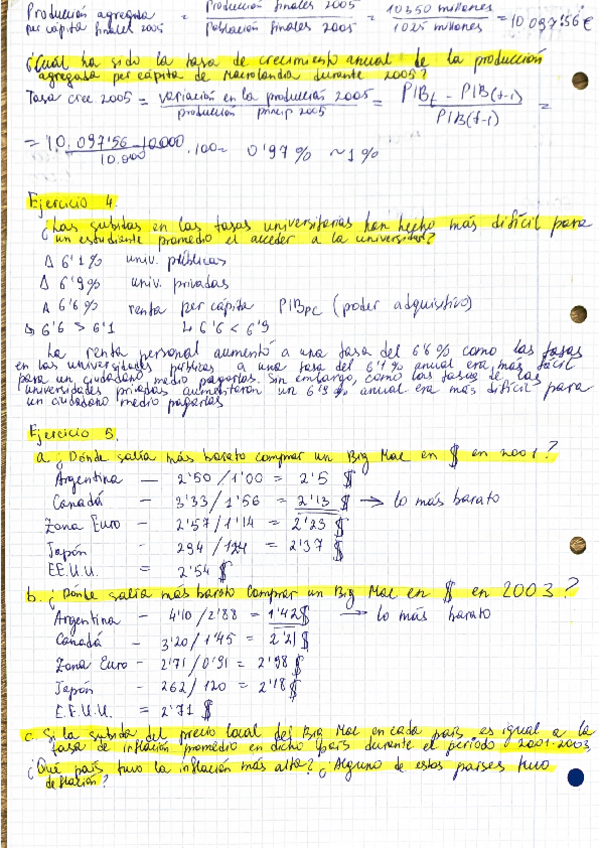 Producción agregada per cápita finales 2005 = Producción finales 2005 / Población finales 2005 = 10350 millones / 1025 millones = 10 097'56 €
¿Cuál ha sido la tasa de crecimiento anual de la producción
agregada per cápita de Macrolandia durante 2005?
Tasa crec 2005 = variación en la producción 2005 / producción princip 2005 = PIBt - PIB(t-1) / PIB(t-1) =
= 10.097'56 - 10000 / 10.000 · 100 = 0'97 % ~ 1 %
Ejercicio 4.
¿Las subidas en las tasas universitarias han hecho más difícil para
un estudiante promedio el acceder a la universidad?
Δ 6'1 % univ. públicas
Δ 6'9 % univ. privadas
Δ 6'6 % renta per cápita PIBpc (poder adquisitivo)
↳ 6'6 > 6'1 ↳ 6'6 < 6'9
La renta personal aumentó a una tasa del 6'6 % como las tasas
en las universidades públicas a una tasa del 6'1 % anual era más fácil
para un ciudadano medio pagarlas. Sin embargo, como las tasas de las
universidades privadas aumentaron un 6'9 % anual era más difícil para
un ciudadano medio pagarlas
Ejercicio 5.
a. ¿Dónde salía más barato comprar un Big Mac en $ en 2001?
Argentina — 2'50 / 1'00 = 2'5 $
Canadá - 3'33 / 1'56 = 2'13 $ → lo más barato
Zona Euro - 2'57 / 1'14 = 2'23 $
Japón - 294 / 124 = 2'37 $
EE.U.U. = 2'54 $
b. ¿Dónde salía más barato comprar un Big Mac en $ en 2003?
Argentina - 4'10 / 2'88 = 1'42 $ → lo más barato
Canadá - 3'20 / 1'45 = 2'21 $
Zona Euro - 2'71 / 0'91 = 2'98 $
Japón - 262 / 120 = 2'18 $
E.E.U.U. = 2'71 $
c. Si la subida del precio local del Big Mac en cada país es igual a la
tasa de inflación promedio en dicho país durante el período 2001-2003
¿Qué país tuvo la inflación más alta? ¿Alguno de estos países tuvo
deflación?